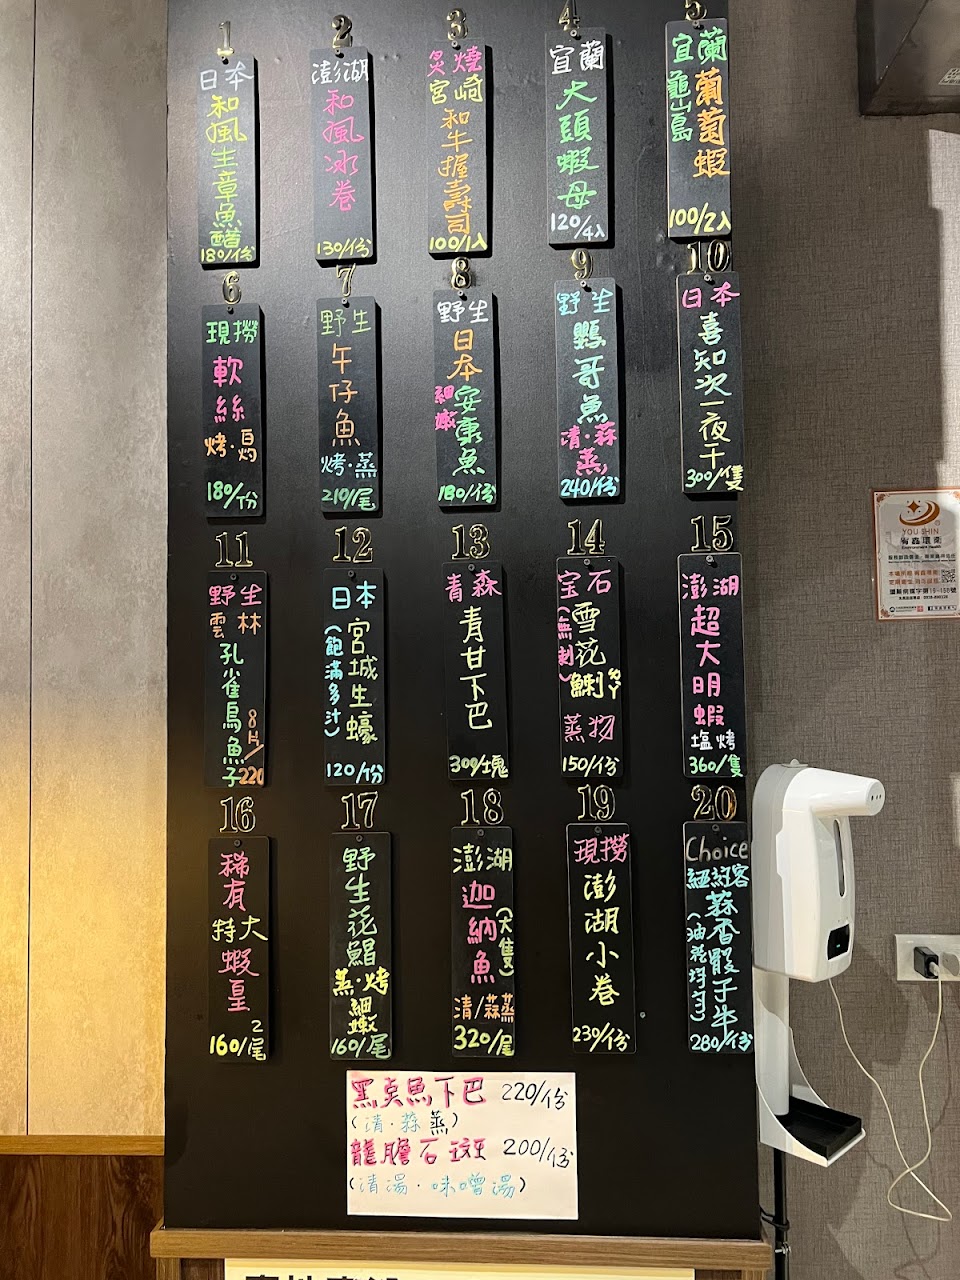 1
日本
和風生章魚醋
180/份
2
澎湖
和風冰卷
130/份
3
炙燒
宮崎
和牛握壽司
100/1入
4
宜蘭
大頭蝦母
120/4入
5
宜蘭
龜山島
葡萄蝦
100/2入
6
現撈
軟絲
烤·焗
180/份
7
野生
午仔魚
烤·蒸
210/尾
8
野生
日本
安康魚
細嫩
180/份
9
野生
鸚哥魚
清·蒜
蒸
240/份
10
日本
喜知次一夜干
300/隻
11
野生
雲林
孔雀烏魚子
8片/220
12
日本
宮城生蠔
(飽滿多汁)
120/份
13
青森
青甘下巴
300/塊
14
宝石
雪花鯻
(無刺)
蒸物
150/份
15
澎湖
超大明蝦
塩烤
360/隻
16
稀有
特大
蝦皇
2
160/尾
17
野生花鯧
蒸·烤
細嫩
160/尾
18
澎湖
迦納魚
(大隻)
清/蒜蒸
320/尾
19
現撈
澎湖小卷
230/份
20
Choice
紐約客
蒜香骰子牛
280/份
黑矣魚下巴 220/份
(清·蒜蒸)
龍膽石斑 200/份
(清湯·味噌湯)
YOU SHIN
宥鑫環衛